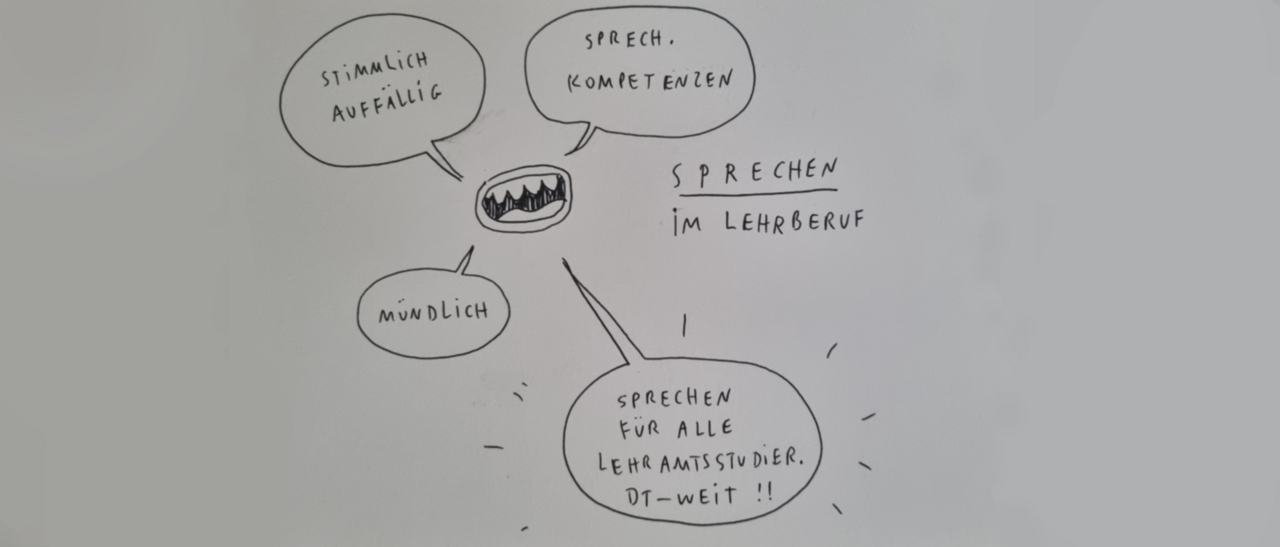 STIMMLICH
AUFFÄLLIG
SPRECH.
KOMPETENZEN
SPRECHEN
IM LEHRBERUF
MÜNDLICH
SPRECHEN
FÜR ALLE
LEHRAMTSSTUDIER.
DT-WEIT !!